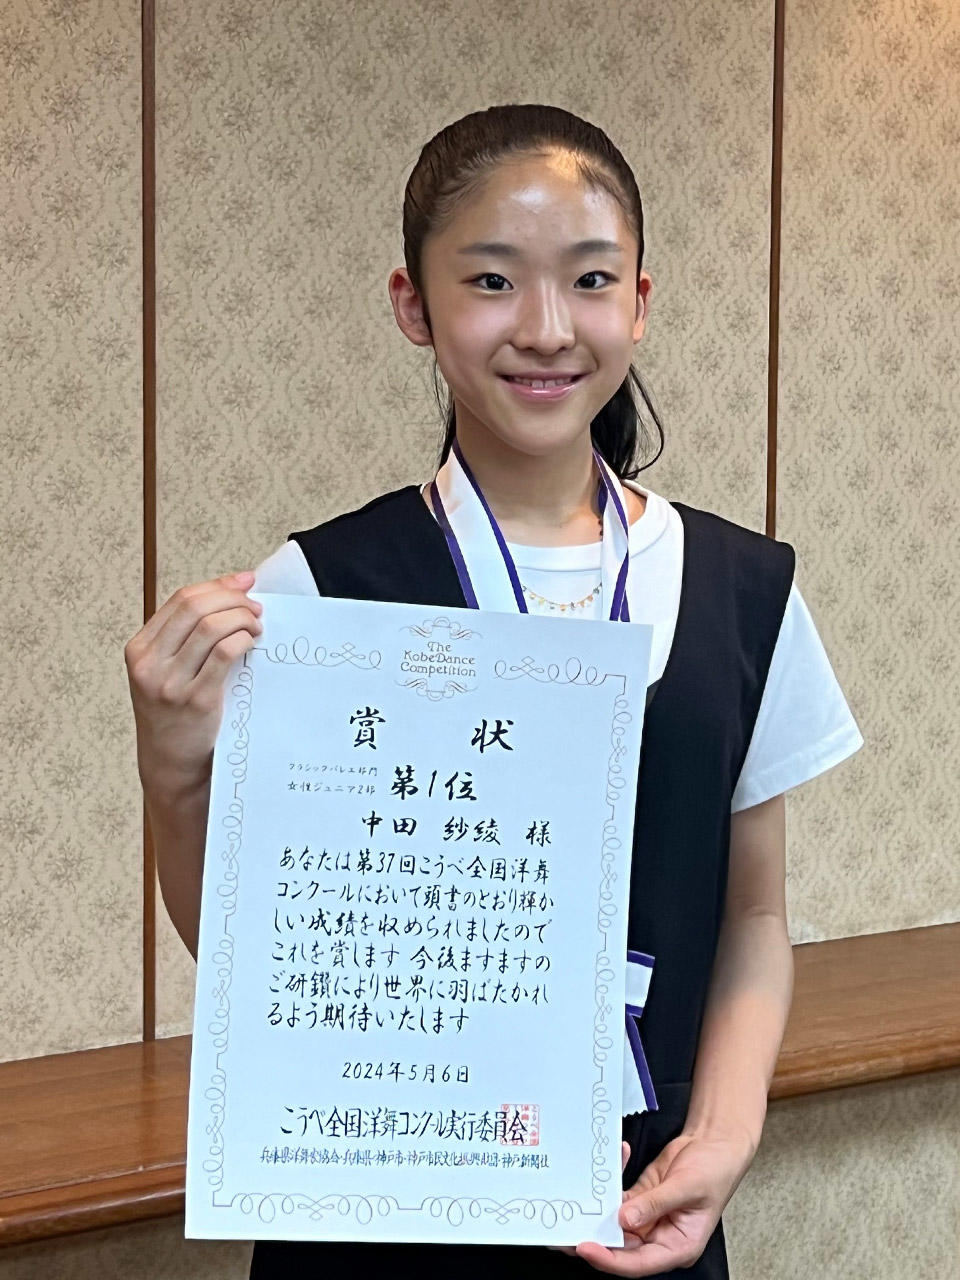 The
KobeDance
Competition
賞 状
クラシックバレエ部門
女性ジュニア2部 第1位
中田 紗綾 様
あなたは第37回こうべ全国洋舞
コンクールにおいて頭書のとおり輝か
しい成績を収められましたので
これを賞します 今後ますますの
ご研鑽により世界に羽ばたかれ
るよう期待いたします
2024年5月6日
こうべ全国洋舞コンクール実行委員会
兵庫県洋舞家協会・兵庫県・神戸市・神戸市民文化振興財団・神戸新聞社